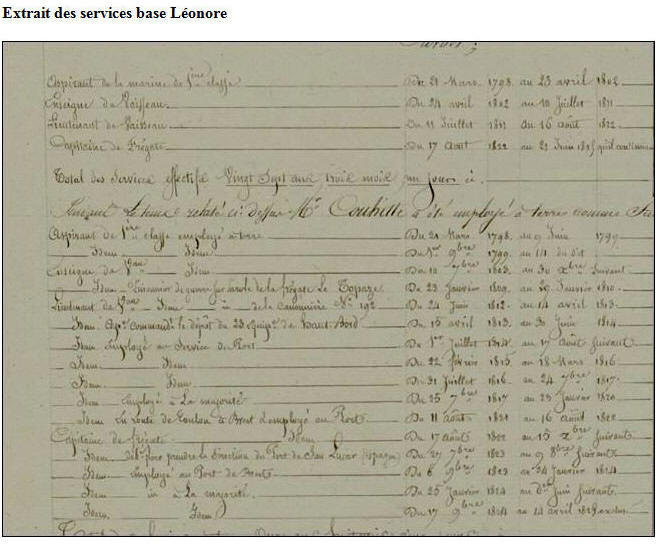 Extrait des services base Léonore
Aspirant de la marine de 1ère classe Du 21 Mars 1798 au 23 avril 1802
Enseigne de Vaisseau Du 24 avril 1802 au 10 Juillet 1811
Lieutenant de Vaisseau Du 11 Juillet 1811 au 16 Août 1822
Capitaine de Frégate Du 17 Août 1822 au 21 Juin 1825 qu'il continue
Total des Services effectifs Vingt Sept ans, trois mois, un jours ci.
Pendant le tems relaté ci dessus Mr a été employé à terre comme
Aspirant de 1ère classe employé à terre Du 21 Mars 1798 au 9 Juin 1799
Idem Idem Du 1er 9bre 1799 au 14 du dit
Enseigne de Vau Idem Du 10 7bre 1803 au 30 Xbre Suivant
Idem Prisonnier de guerre sur parole de la frégate Le Topaze Du 23 Janvier 1809 au 29 Janvier 1810
Lieutenant de Vau Idem in de la canonnière No 192 Du 24 Juin 1812 au 14 avril 1813
Idem commandt le dépôt du 23 équipe de haut-Bord Du 15 avril 1813 au 30 Juin 1814
Idem Employé au Service du Port Du 1er Juillet 1814 au 17 Août Suivant
Idem Idem Du 22 février 1815 au 18 Mars 1816
Idem Idem Du 31 Juillet 1816 au 24 7bre 1817
Idem Employé à La majorité Du 25 7bre 1817 au 23 Janvier 1820
Idem En route de Toulon à Brest et employé au Port Du 11 Août 1821 au 16 Août 1822
Capitaine de frégate Idem Du 17 Août 1822 au 15 Xbre Suivant
Idem pour prendre la direction du Port de San Lucar (Espagne) Du 27 7bre 1823 au 9 8bre Suivant
Idem Employé au Port de Brest Du 6 9bre 1823 au 24 Janvier 1824
Idem in à La majorité Du 25 Janvier 1824 au Juin Suivant
Idem Idem Du 17 9bre 1824 au 14 avril 1825